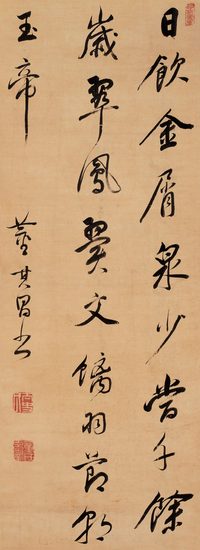 日飲金屑泉少當千餘
歲翠鳳翼文螭羽節朝
玉帝
董其昌書